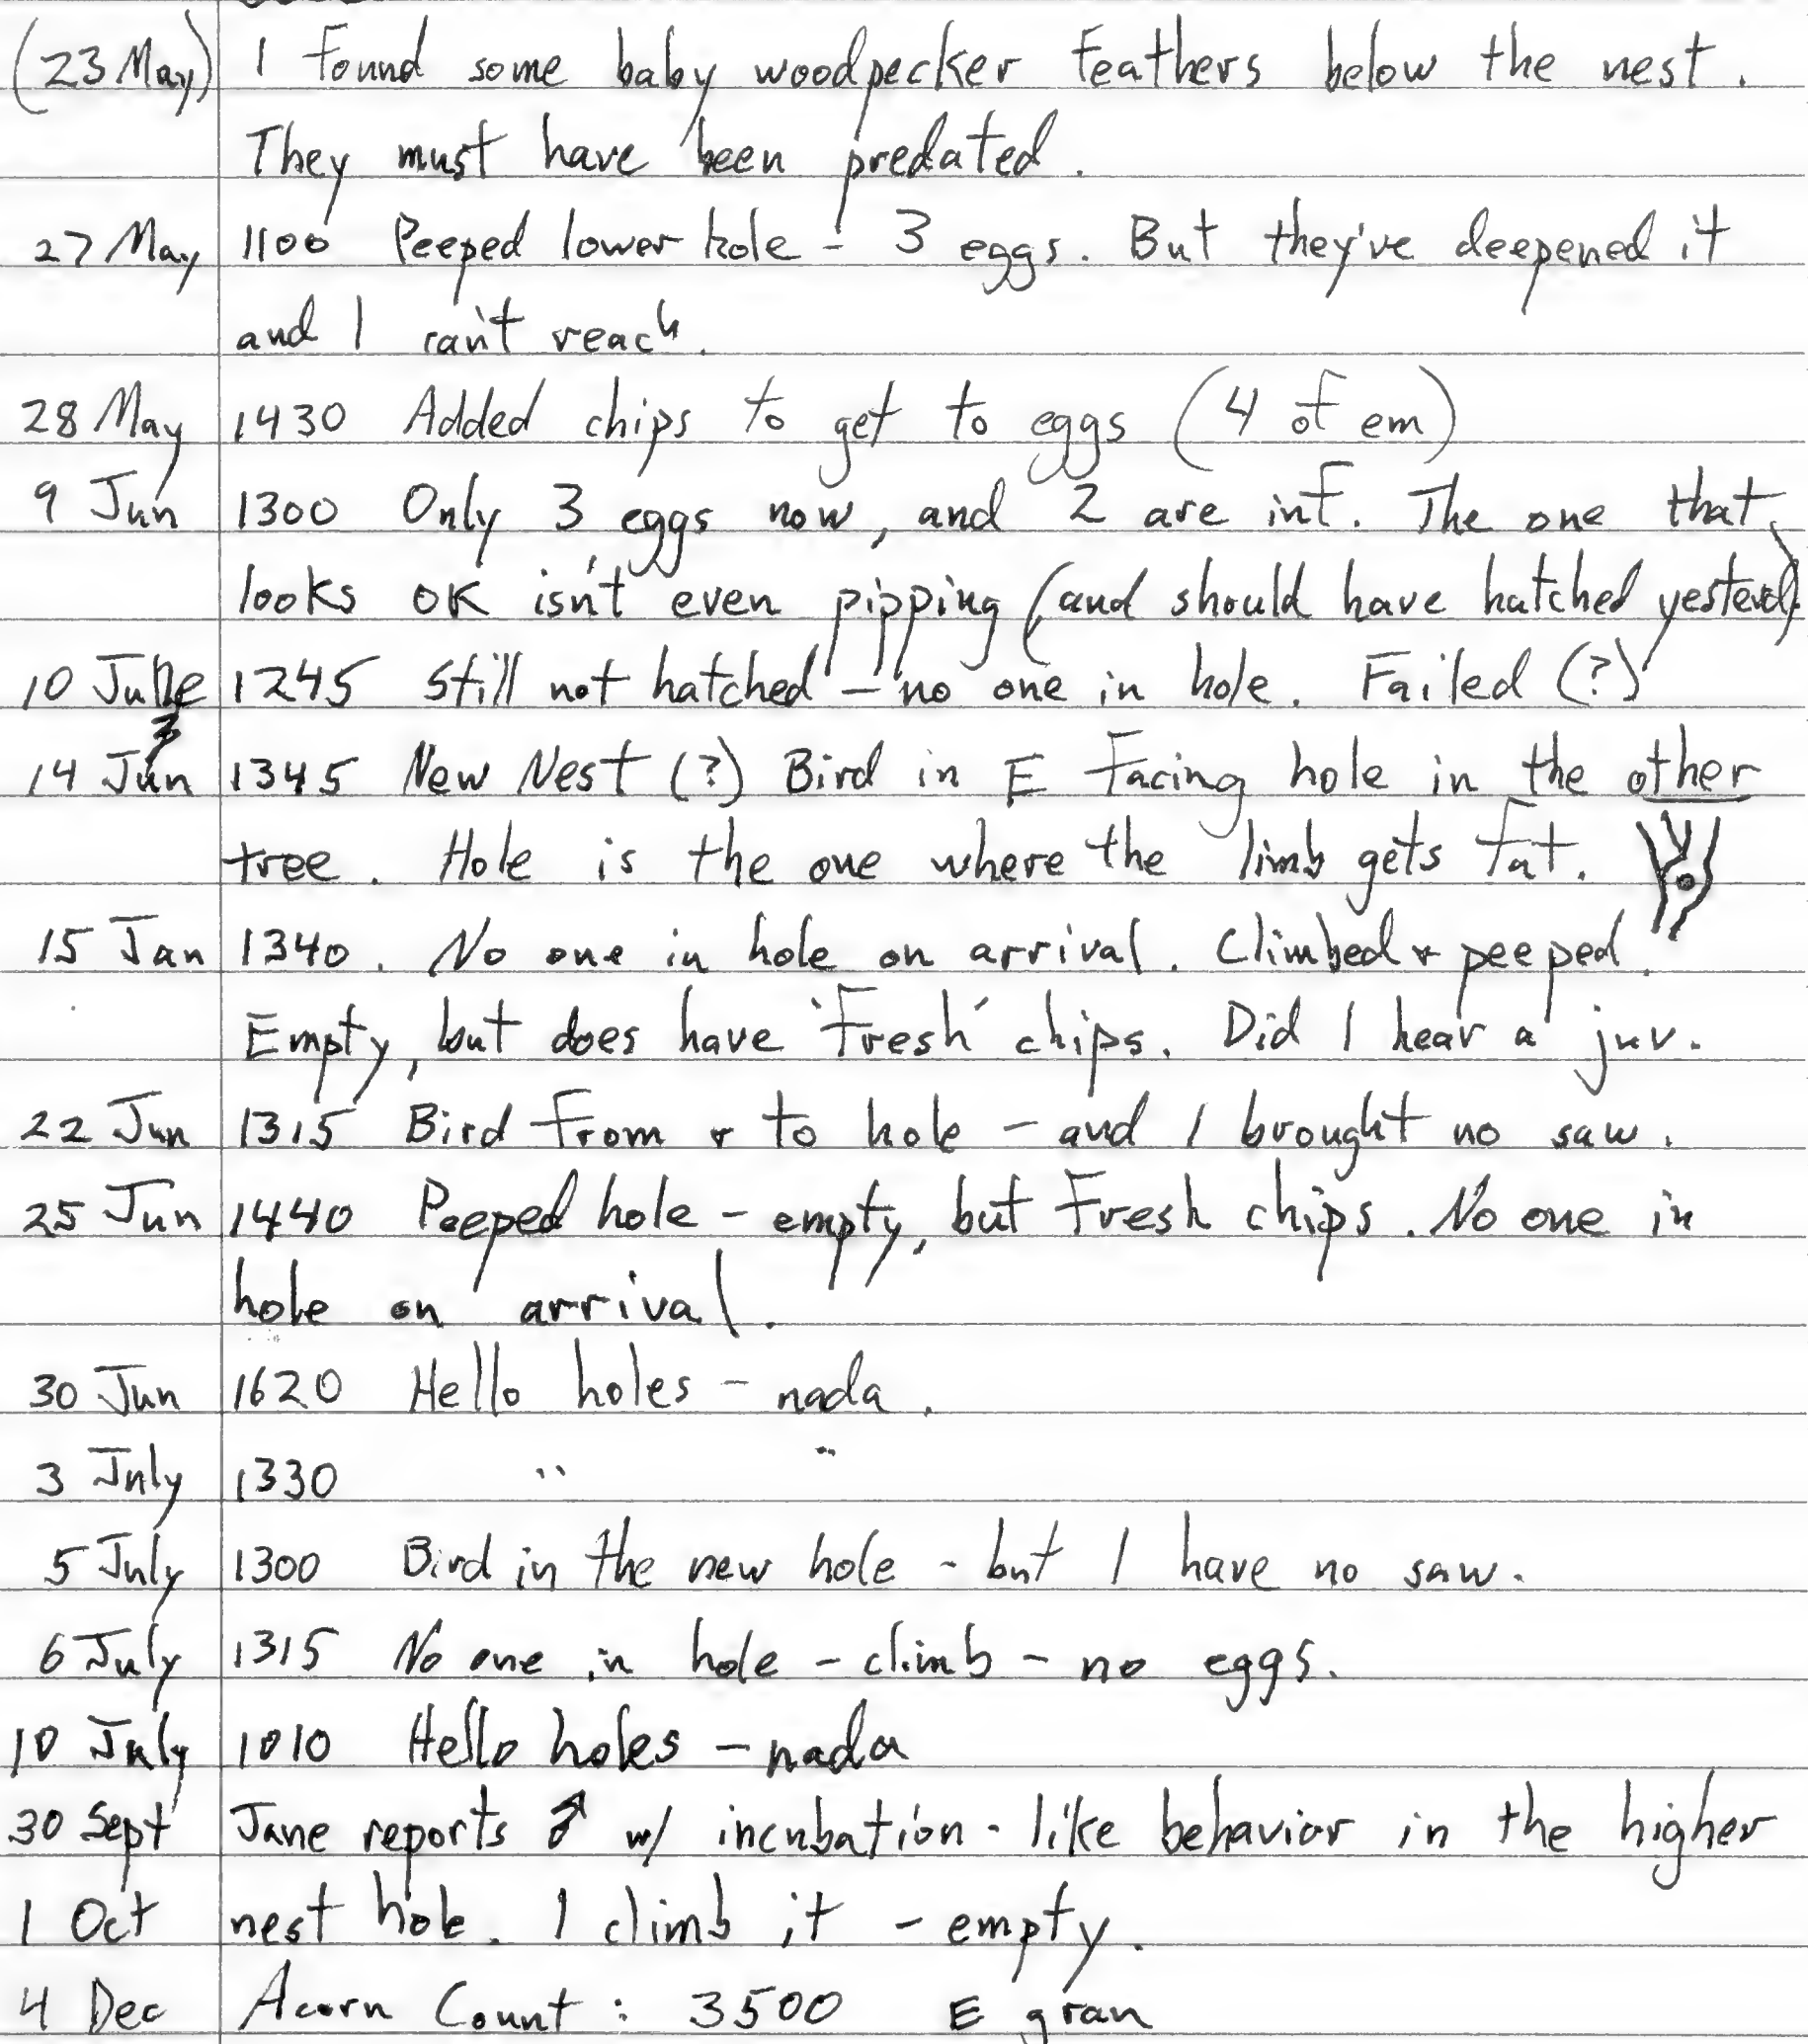 (23 May) I found some baby woodpecker feathers below the nest.
They must have been predated.
27 May 1100 Peeped lower hole - 3 eggs. But they've deepened it
and I can't reach.
28 May 1430 Added chips to get to eggs (4 of em)
9 Jun 1300 Only 3 eggs now, and 2 are inf. The one that
looks OK isn't even pipping (and should have hatched yesterd)
10 June 1245 Still not hatched - no one in hole. Failed (?)
14 Jun 1345 New Nest (?) Bird in E facing hole in the other
tree. Hole is the one where the limb gets fat.
15 Jan 1340. No one in hole on arrival. Climbed + peeped.
Empty, but does have 'fresh' chips. Did I hear a juv.
22 Jun 1315 Bird from + to hole - and I brought no saw.
25 Jun 1440 Peeped hole - empty, but fresh chips. No one in
hole on arrival.
30 Jun 1620 Hello holes - nada.
3 July 1330 " "
5 July 1300 Bird in the new hole - but I have no saw.
6 July 1315 No one in hole - climb - no eggs.
10 July 1010 Hello holes - nada
30 Sept Jane reports ♂ w/ incubation-like behavior in the higher
1 Oct nest hole. I climb it - empty.
4 Dec Acorn Count: 3500 E gran